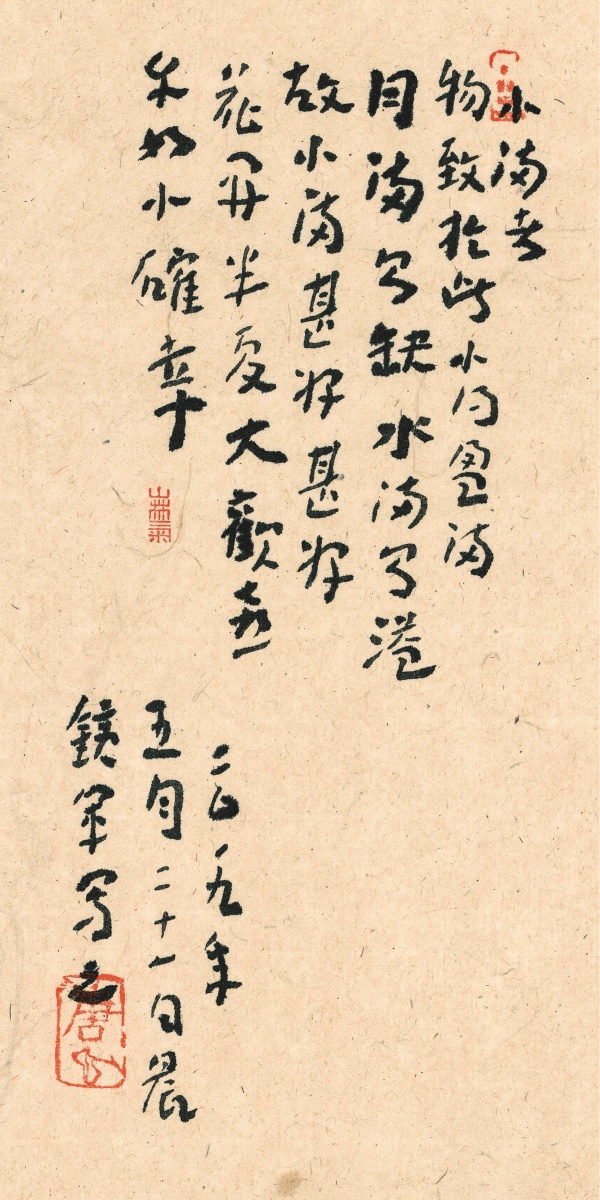 小满者
物致於此小得盈满
月满则缺水满则溢
故小满甚好甚好
花开半夏大歡喜
如小確幸
二〇一九年
五月二十一日晨
鐵军写之